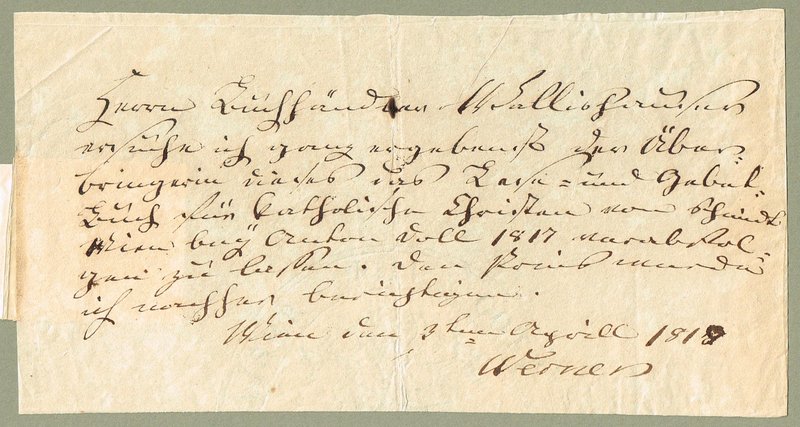 Herrn Buchhändler Wallishauser
ersuche ich ganz ergebenst der Über-
bringerin dieses das Lese- und Gebet-
Buch für katholische Christen von Schmidt
Wien bey Anton Doll 1817 verabfol-
gen zu lassen. Den Preis werde
ich nachher berichtigen.
Wien den 3ten Aprill
Werner